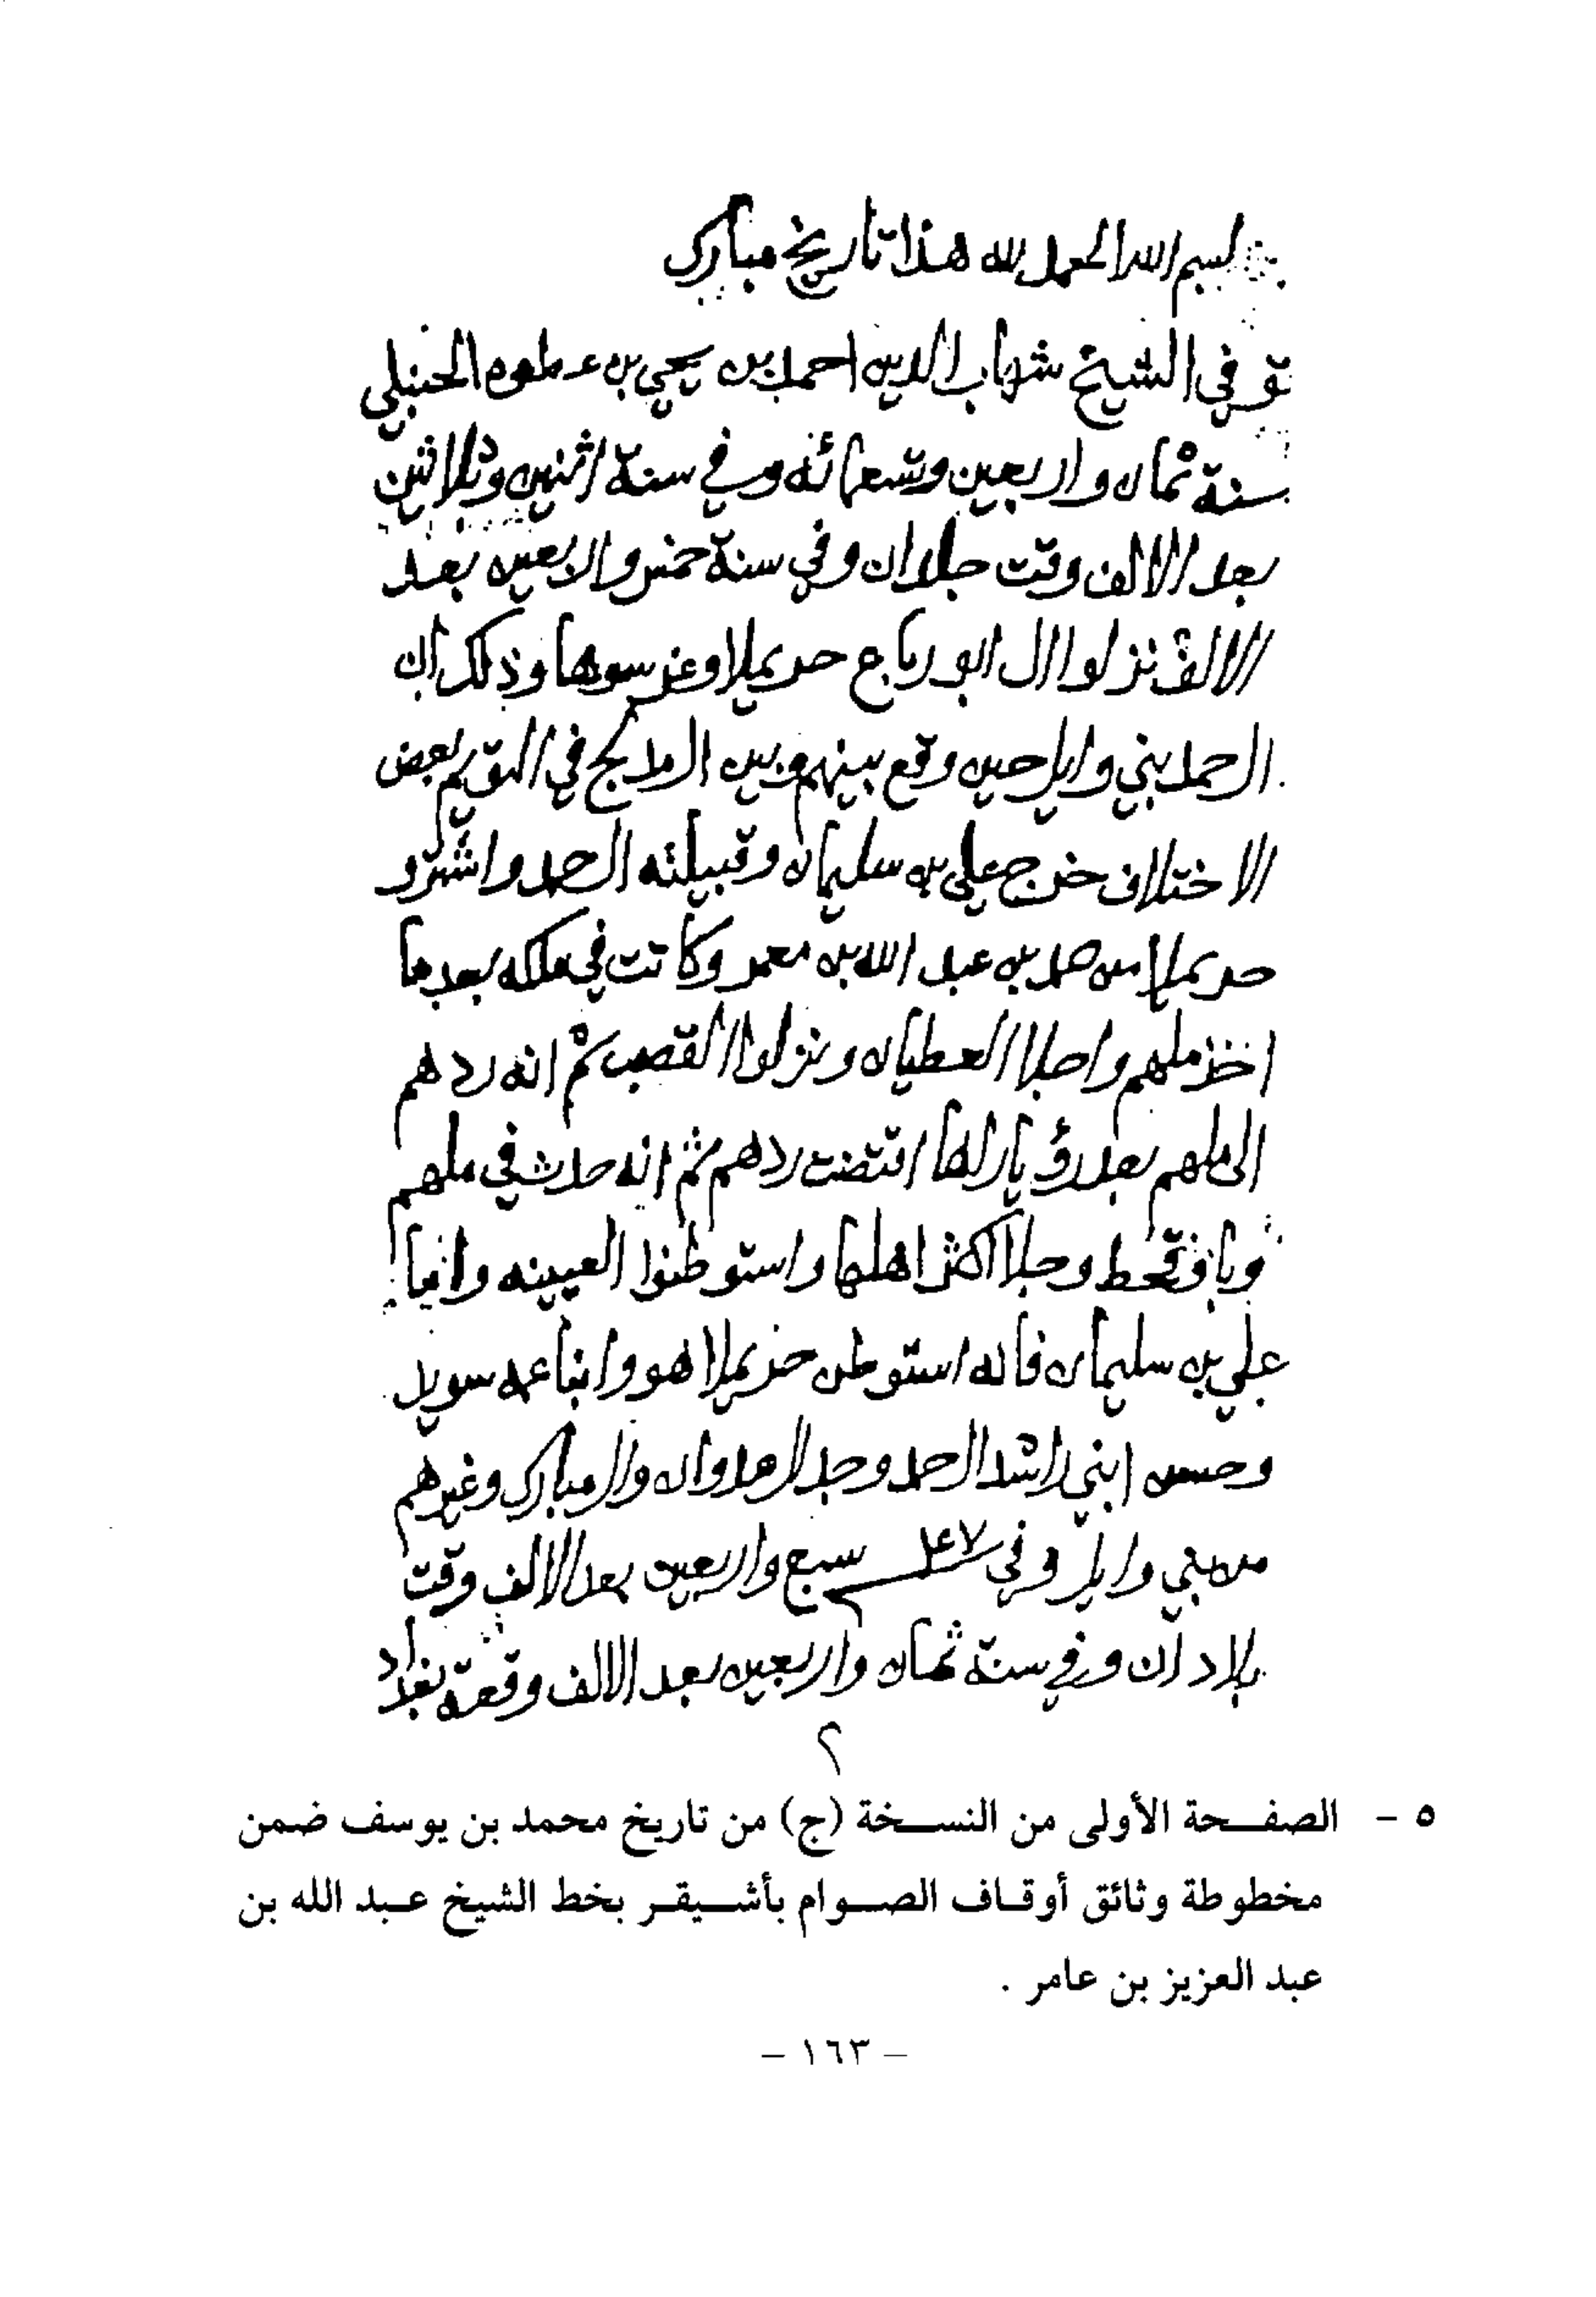 بسم الله الحمد لله هذا تاريخ مبارك
توفي الشيخ شهاب الدين احمد بن يحيى بن عطوه الحنبلي
سنة ثمان واربعين وتسعمائة وفي سنة اثنين وثلاثين
بعد الالف وقت جلدان وفي سنة خمس والاربعين بعد
الالف نزلوا ال ابو رباع حريملا وغرسوها وذلك ان
ال حمد بني وايل حين وقع بينهم وبين ال مدلج في التويم بعض
الاختلاف خرج علي بن سليمان وقبيلته ال حمد واشترو
حريملا من حمد بن عبد الله بن معمر وكانت في ملكه بعد ما
اخذ ملهم واجلا العطيان ونزلوا القصب ثم انه ردهم
الى ملهم بعد رؤيا رلها اقتضت ردهم ثم انه حدث في ملهم
وباء وقحط وجلا اكثر اهلها واستوطنوا العيينه واما
علي بن سليمان فانه استوطن حريملا هو وابنا عمه سويد
وحسن ابني راشد ال حمد وجد ال عدوان وال مبارك وغيرهم
من بني وايل وفي ٤٧ سنة سبع واربعين بعد الالف وقت
بلادان وفي سنة ثمان واربعين بعد الالف وقعة بغداد
٥ - الصفحة الأولى من النسخة (ج) من تاريخ محمد بن يوسف ضمن
مخطوطة وثائق أوقاف الصوام بأشيقر بخط الشيخ عبد الله بن
عبد العزيز بن عامر .
– ١٦٣ –